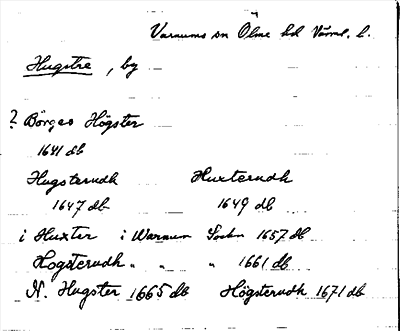 Varnums sn Ölme hd Värml. l.
Hugstre, by
? Börges Högster
1641 db
Hugsterudh Huxterudh
1647 db 1649 db
i Huxter i Warnum Sockn 1657 db
Hogsterudh „ „ „ 1661 db
N. Hugster 1665 db Högsterudh 1671 db